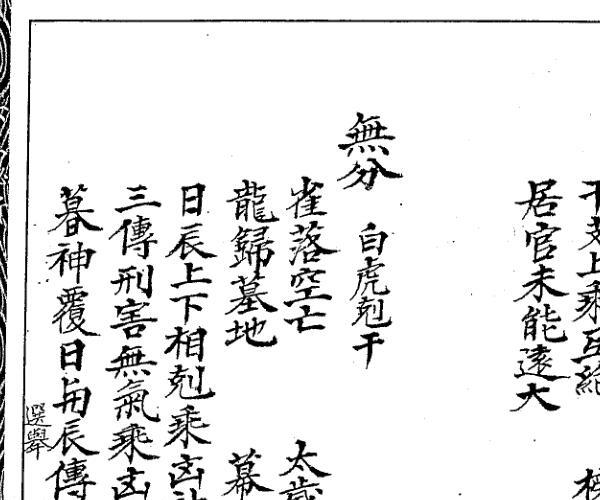 干支上乘互絕
居官未能遠大
無分 白虎剋干
雀落空亡 太歲
龍歸墓地 幕
日辰上下相剋乘凶
三傳刑害無氣乘凶
暮神覆日與辰傳
選舉